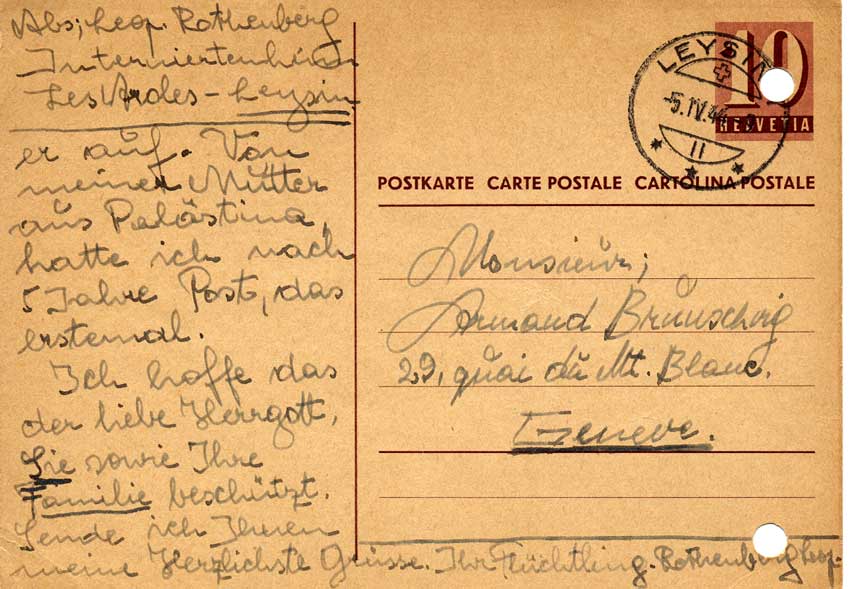 Abs; Leop. Rothenberg
Interniertenheim
Les Aroles - Leysin
er auf. Von
meiner Mutter
aus Palästina,
hatte ich nach
5 Jahre Post, das
erstemal.
Ich hoffe das
der liebe Herrgott,
Sie sowie Ihre
Familie beschützt.
Sende ich Ihnen
meine Herzlichste Grüsse. Ihr Flüchtling. Rothenberg Leop.
LEYSIN
-5.IV.44
II
10
HELVETIA
POSTKARTE CARTE POSTALE CARTOLINA POSTALE
Monsieur;
Armand Brunschvig
29, quai du Mt. Blanc.
Geneve.